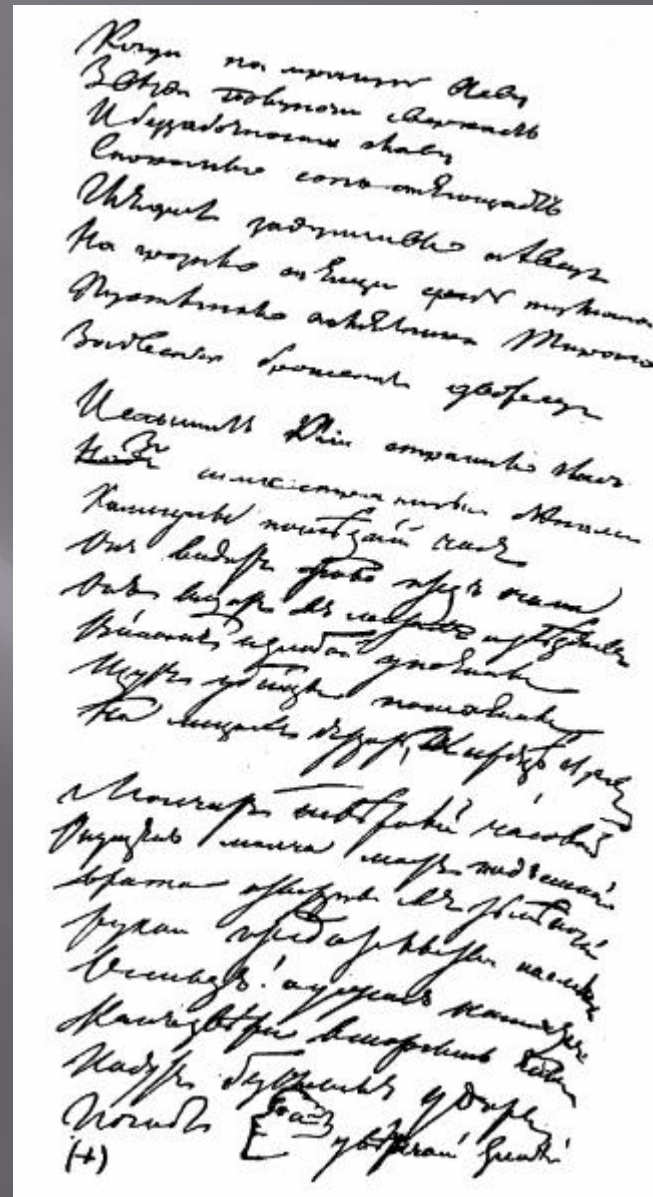 Когда на мрачную Неву
Звѣзда полуночи сверкаетъ
И беззаботную главу
Спокойный сонъ отягощаетъ
Глядитъ задумчивый пѣвецъ
На грозно спящій средь тумана
Пустынный памятникъ Тирана
Забвенью брошенный дворецъ
И слышитъ Кліи страшный гласъ
За сими страшными стѣнами
Калигулы послѣдній часъ
Онъ видитъ живо предъ очами
Онъ видитъ въ лентахъ и звѣздахъ
Виномъ и злобой упоенны
Идутъ убійцы потаенны
На лицахъ дерзость, въ сердцѣ страхъ
Молчитъ невѣрный часовой
Опущенъ молча мостъ подъемный
Врата отверсты въ тьмѣ ночной
рукой предательства наемной
О стыдъ! о ужасъ нашихъ дней
Какъ звѣри вторглись
Падутъ безславные удары
Погибъ увѣнчанный злодѣй
(+)